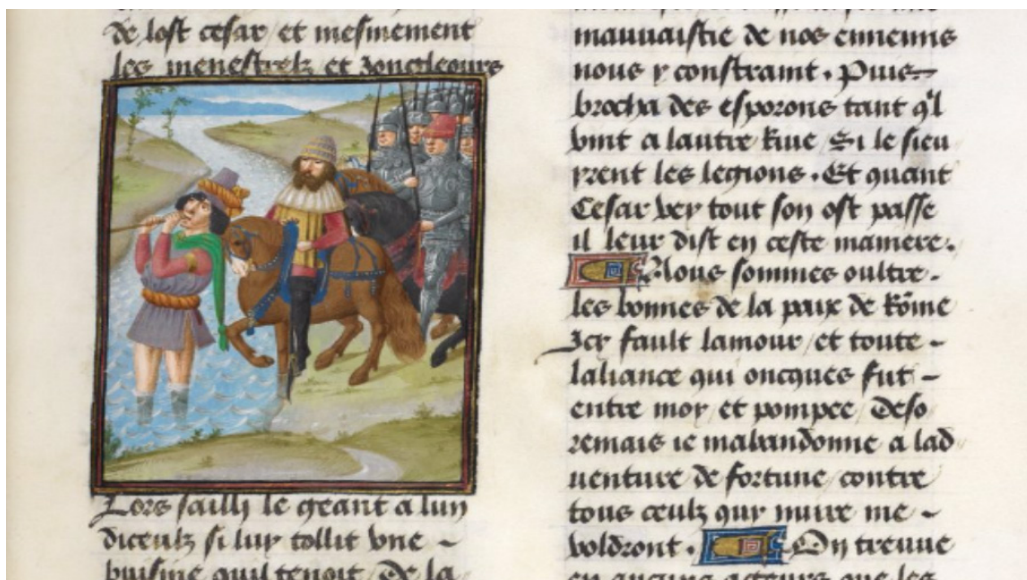 de lost cesar / et mesmement
les menestrelz et Jongleours
Lors sailli le geant a lun
diceulz si luy tollit vne -
buisine quil tenoit / De la
mauuaistie de nos ennemis
nous y constraint . Puis
brocha des esporons tant ql
vint a lautre Riue / Si le sieu
yrent les legions . Et quant
Cesar vey tout son ost passe
il leur dist en ceste maniere .
Nous sommes oultre .
les bonnes de la paix de Rome
Icy fault lamour / et toute -
laliance qui oncques fut -
entre moy / et pompee / Deso
remais ie mabandonne a lad
uenture de fortune / contre
tous ceulz quy nuire me -
voldront . On treuue
en aucuns acteurs que les